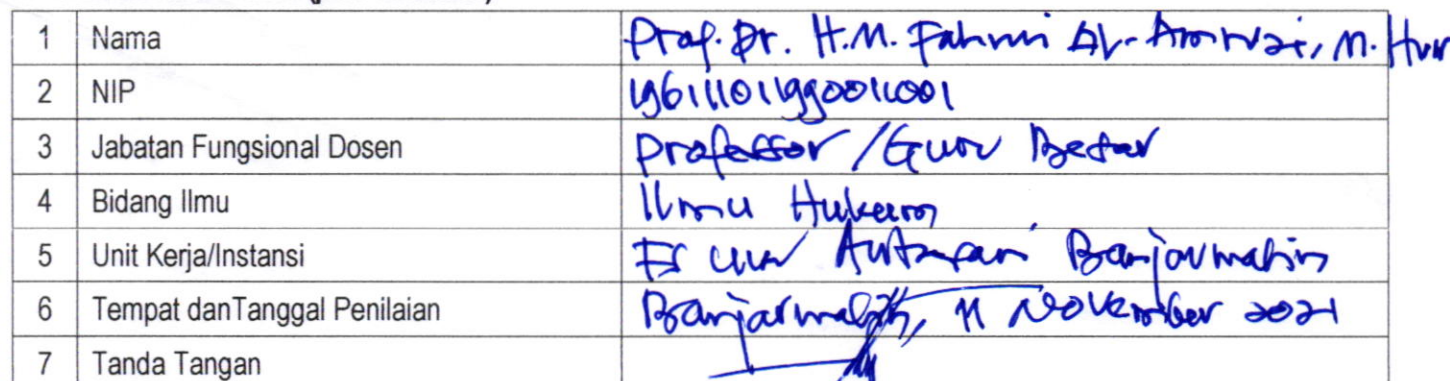 1 Nama Prof. Dr. H.M. Fahmi Al-Amruzi, M. Hum
2 NIP 196111011990011001
3 Jabatan Fungsional Dosen Professor / Guru Besar
4 Bidang Ilmu Ilmu Hukum
5 Unit Kerja/Instansi Antasari Banjarmasin
6 Tempat danTanggal Penilaian Banjarmasin, 11 November 2021
7 Tanda Tangan